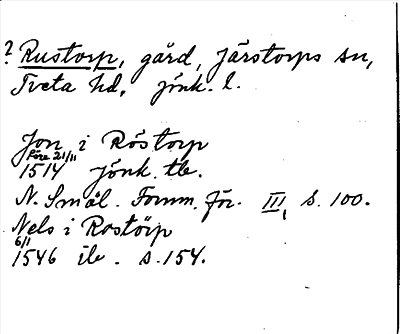 ? Rustorp, gård, Järstorps sn,
Tveta hd, jönk. l.
Jon i Röstorp
före 21/11
1514 jönk. tb.
N. Smål. Fornm. för. III, s. 100.
Nels i Rostörp
6/1
1546 ib. s. 154.